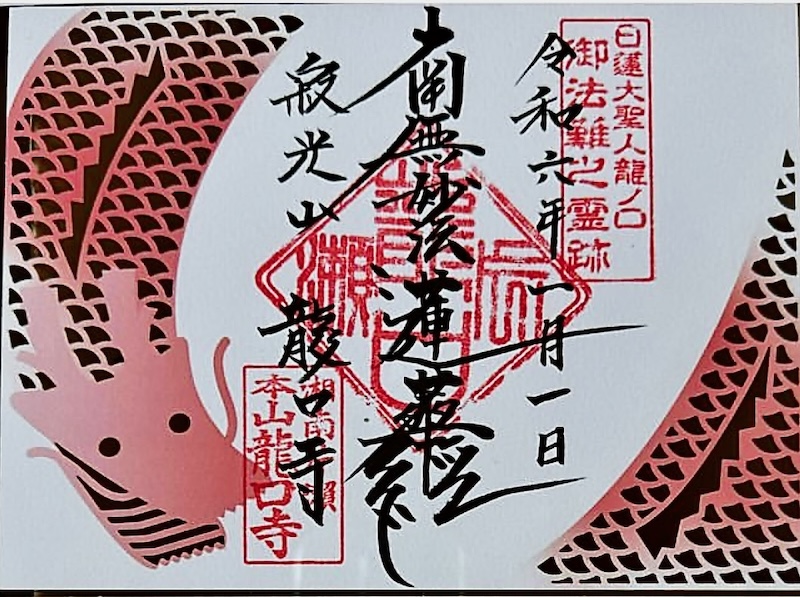 日蓮大聖人龍ノ口
御法難之霊跡
令和六年一月一日
南無妙法蓮華経
寂光山 龍口寺
本山龍口寺